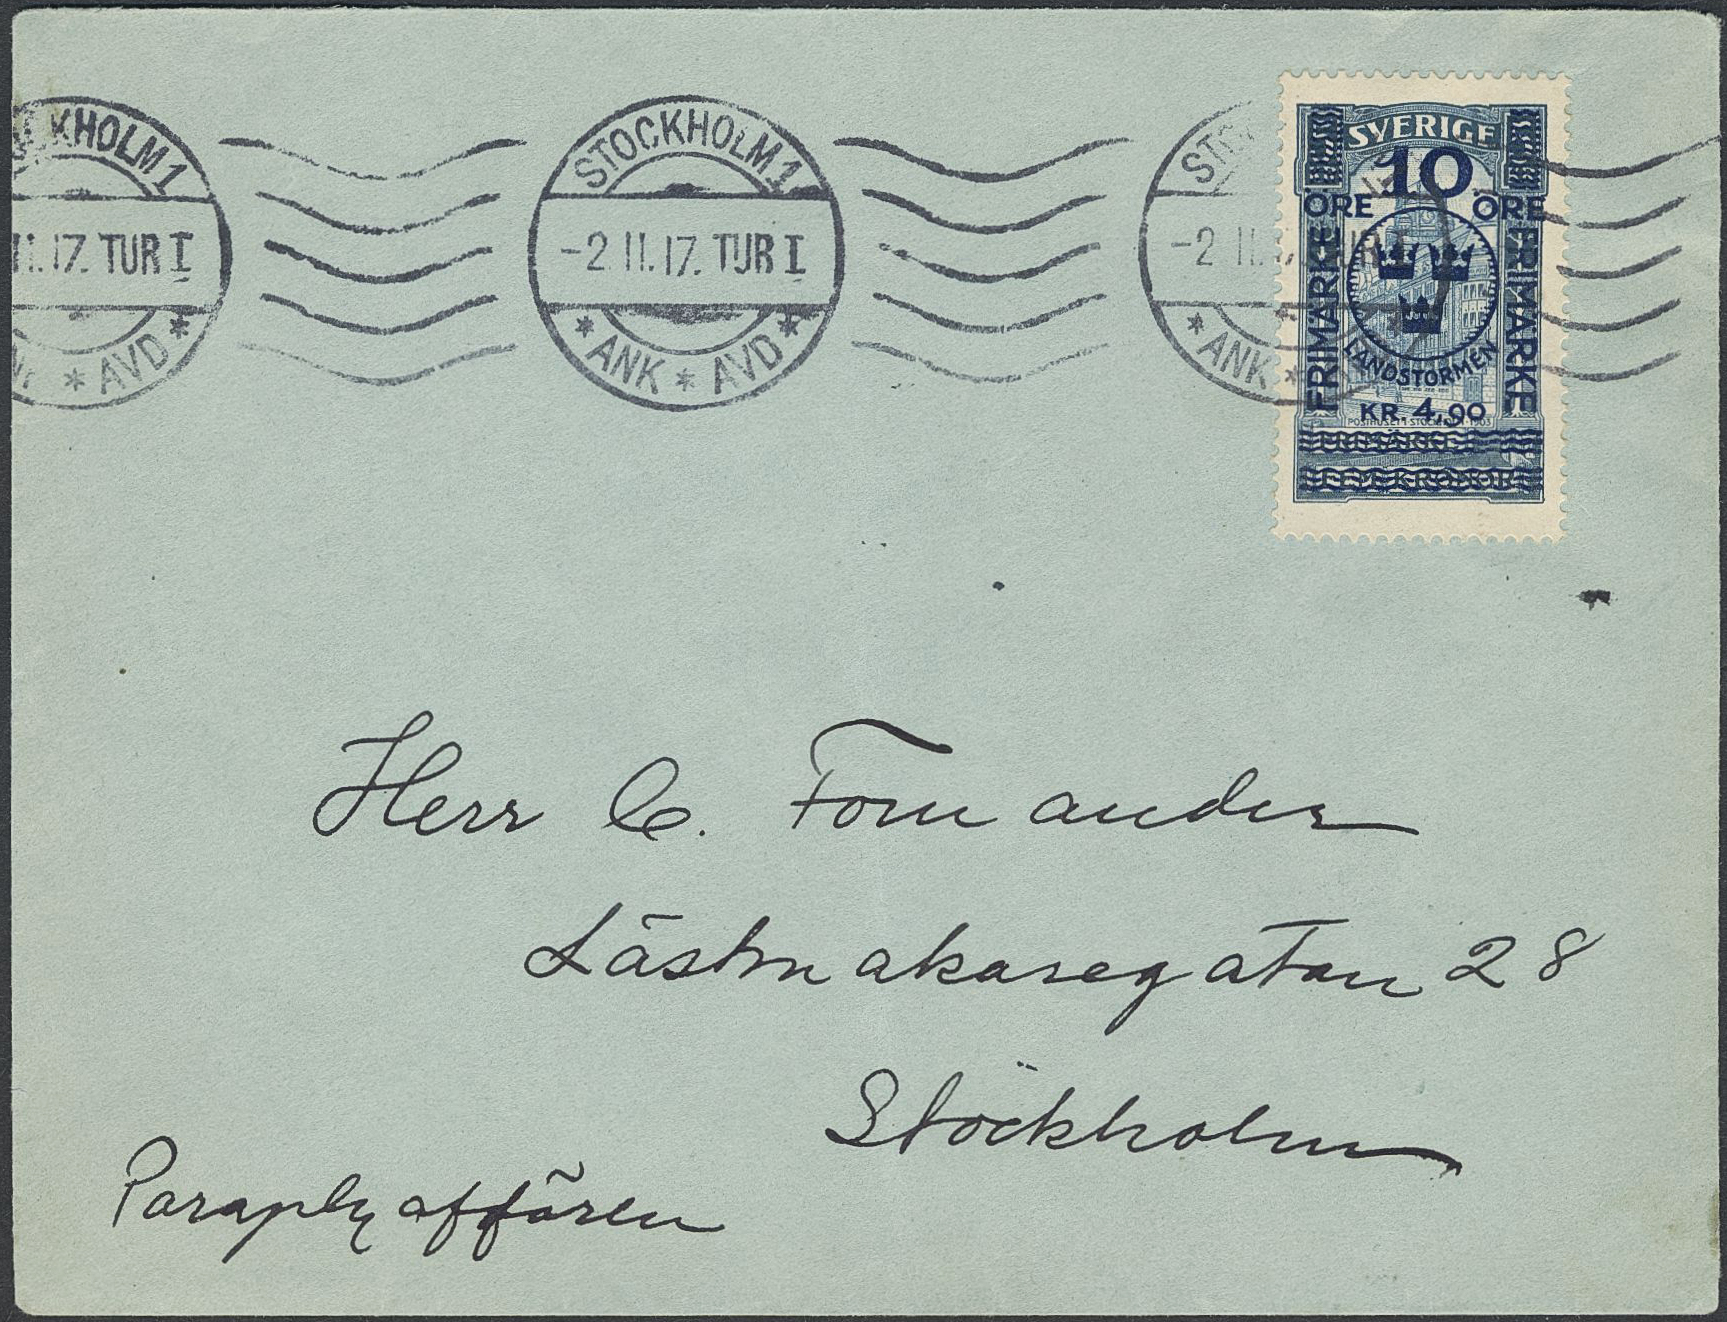 KHOLM 1
11.17. TUR I
* AVD *
STOCKHOLM 1
-2.11.17. TUR I
* ANK * AVD *
-2.11.
* ANK *
SVERIGE
10
ÖRE ÖRE
FRIMÄRKE
FRIMÄRKE
LANDSTORMEN
KR. 4,90
POSTHUSET I STOCKHOLM · 1903
FRIMÄRKE
KRONOR
Herr C. Fornander
Lästmakaregatan 28
Stockholm
Paraplyaffären